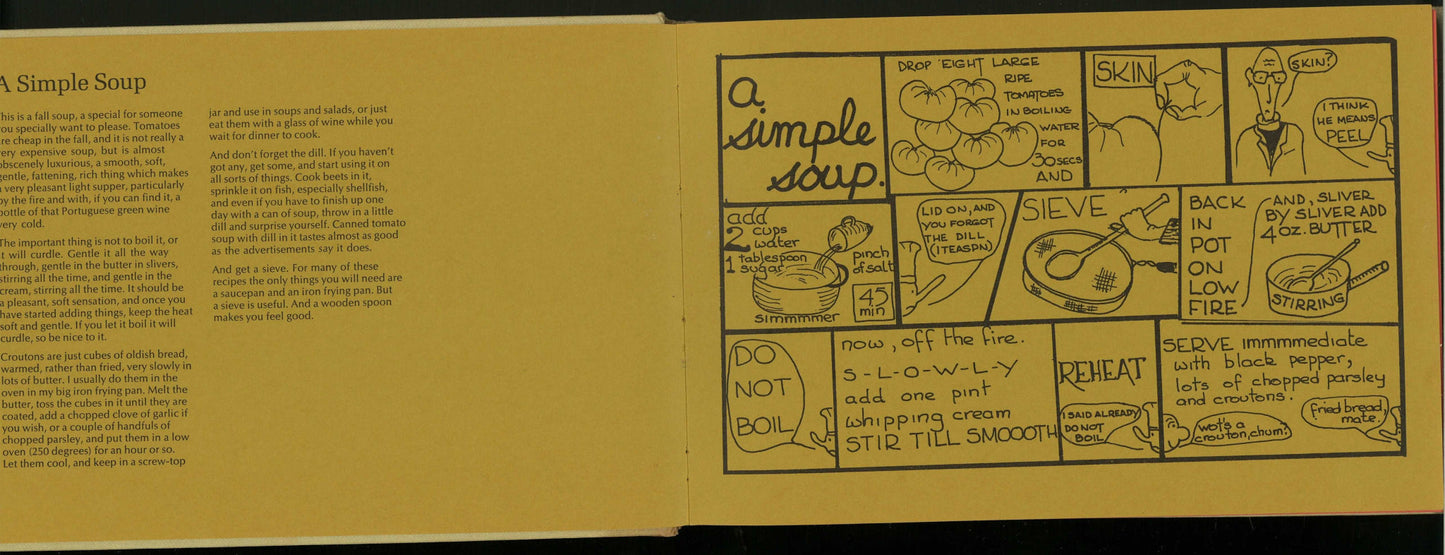 A Simple Soup
This is a fall soup, a special for someone
you specially want to please. Tomatoes
are cheap in the fall, and it is not really a
very expensive soup, but is almost
obscenely luxurious, a smooth, soft,
gentle, fattening, rich thing which makes
a very pleasant light supper, particularly
by the fire and with, if you can find it, a
bottle of that Portuguese green wine
very cold.
The important thing is not to boil it, or
it will curdle. Gentle it all the way
through, gentle in the butter in slivers,
stirring all the time, and gentle in the
cream, stirring all the time. It should be
a pleasant, soft sensation, and once you
have started adding things, keep the heat
soft and gentle. If you let it boil it will
curdle, so be nice to it.
Croutons are just cubes of oldish bread,
warmed, rather than fried, very slowly in
lots of butter. I usually do them in the
oven in my big iron frying pan. Melt the
butter, toss the cubes in it until they are
coated, add a chopped clove of garlic if
you wish, or a couple of handfuls of
chopped parsley, and put them in a low
oven (250 degrees) for an hour or so.
Let them cool, and keep in a screw-top
jar and use in soups and salads, or just
eat them with a glass of wine while you
wait for dinner to cook.
And don't forget the dill. If you haven't
got any, get some, and start using it on
all sorts of things. Cook beets in it,
sprinkle it on fish, especially shellfish,
and even if you have to finish up one
day with a can of soup, throw in a little
dill and surprise yourself. Canned tomato
soup with dill in it tastes almost as good
as the advertisements say it does.
And get a sieve. For many of these
recipes the only things you will need are
a saucepan and an iron frying pan. But
a sieve is useful. And a wooden spoon
makes you feel good.
a
simple
soup.
DROP EIGHT LARGE
RIPE
TOMATOES
IN BOILING
WATER
FOR
30 SECS
AND
SKIN
SKIN?
I THINK
HE MEANS
PEEL
add
2 cups
water
1 tablespoon
sugar
pinch
of salt
45
min
simmmmer
LID ON, AND
YOU FORGOT
THE DILL
(1 TEASPN)
SIEVE
BACK
IN
POT
ON
LOW
FIRE
AND, SLIVER
BY SLIVER ADD
4 OZ. BUTTER
STIRRING
DO
NOT
BOIL
now, off the fire.
S-L-O-W-L-Y
add one pint
whipping cream
STIR TILL SMOOOTH
REHEAT
I SAID ALREADY
DO NOT
BOIL
SERVE immmmediate
with black pepper,
lots of chopped parsley
and croutons.
wot's a
crouton, chum?
fried bread,
mate.